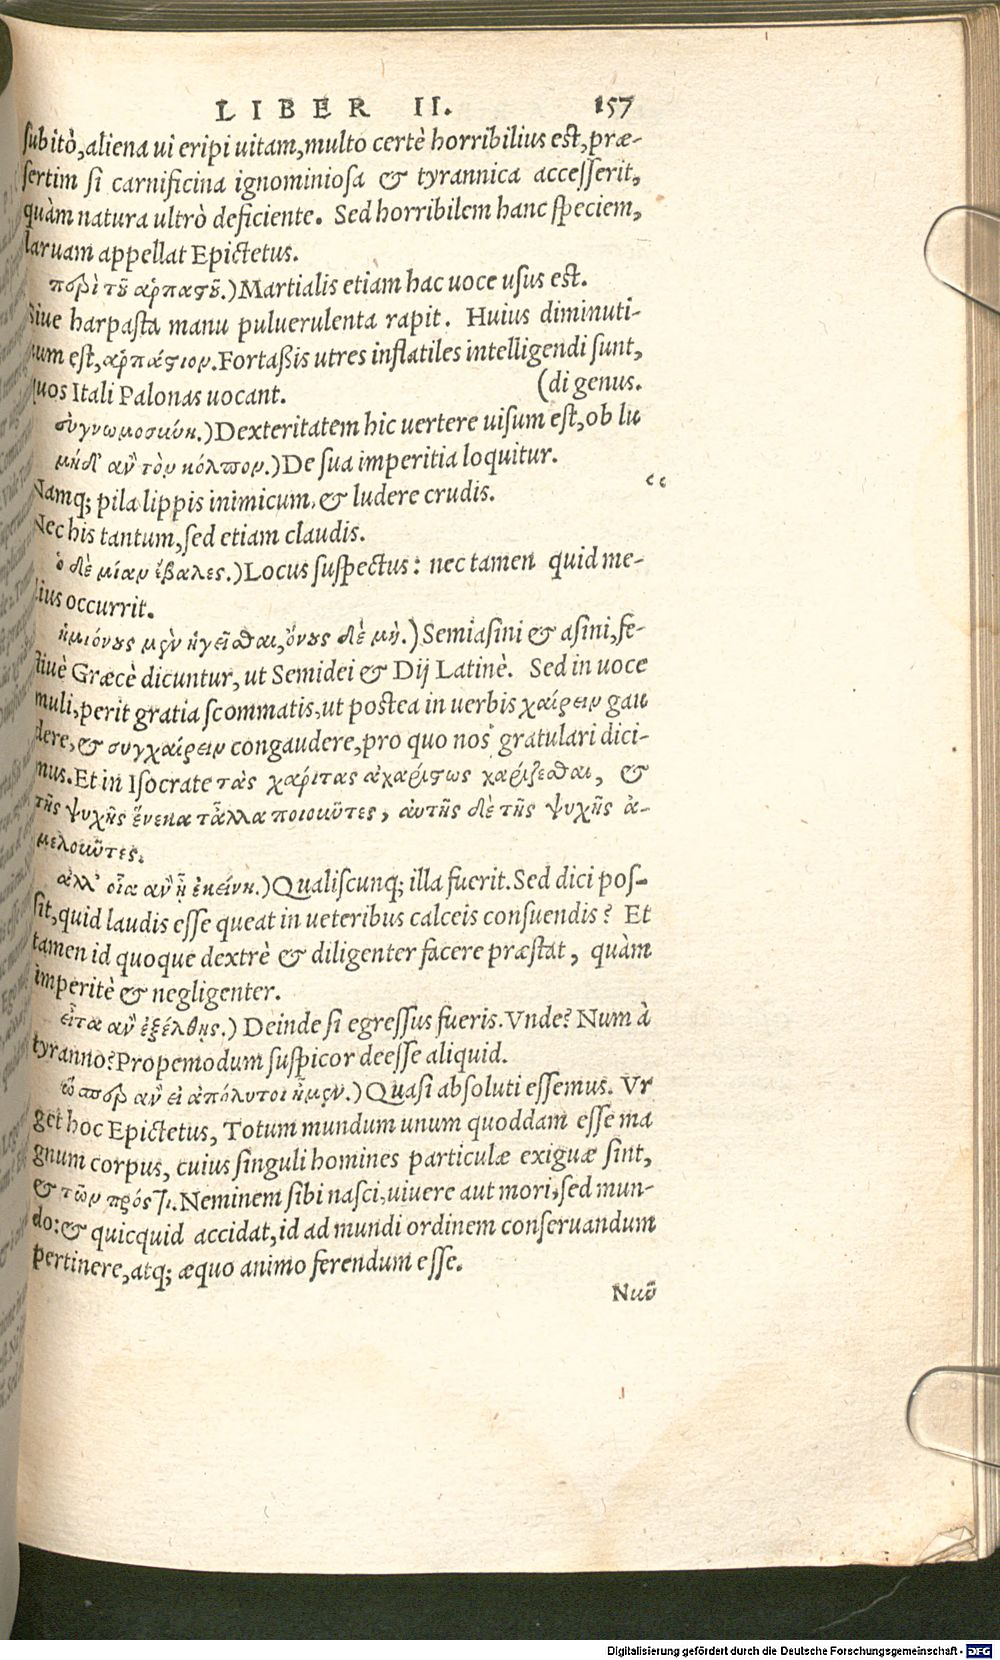 LIBER II. 157
subitò, aliena ui eripi uitam, multo certè horribilius est, præ-
sertim si carnificina ignominiosa & tyrannica accesserit,
quàm natura ultrò deficiente. Sed horribilem hanc speciem,
laruam appellat Epictetus.
περὶ τȣ̃ ἁρπαστȣ̃.) Martialis etiam hac uoce usus est.
Siue harpasta manu puluerulenta rapit. Huius diminuti-
uum est, ἁρπάστιον. Fortaßis utres inflatiles intelligendi sunt,
quos Itali Palonas uocant. (di genus.
εὐγνωμοσύνη.) Dexteritatem hic uertere uisum est, ob lu
μηδ' ἂν τὸν κόλπον.) De sua imperitia loquitur.
Namq; pila lippis inimicum, & ludere crudis. “
Nec his tantum, sed etiam claudis.
ὁ δὲ μίαν ἔβαλες.) Locus suspectus: nec tamen quid me-
lius occurrit.
ἡμιόνȣς μὲν ἡγεῖσθαι, ὄνȣς δὲ μὴ.) Semiasini & asini, fe-
stiuè Græcè dicuntur, ut Semidei & Dij Latinè. Sed in uoce
muli, perit gratia scommatis, ut postea in uerbis χαίρειν gau
dere, & συγχαίρειν congaudere, pro quo nos gratulari dici-
mus. Et in Isocrate τὰς χάριτας ἀχαρίστως χαρίζεσθαι, &
τῆς ψυχῆς ἕνεκα τἆλλα ποιοιῦτες, αὐτῆς δὲ τῆς ψυχῆς ἀ-
μελοιῦτες.
ἀλλ' οἵα ἂν ᾖ ἐκείνη.) Qualiscunq; illa fuerit. Sed dici pos-
sit, quid laudis esse queat in ueteribus calceis consuendis? Et
tamen id quoque dextrè & diligenter facere præstat, quàm
imperitè & negligenter.
εἶτα ἂν ἐξέλθῃς.) Deinde si egressus fueris. Vnde? Num à
tyranno? Propemodum suspicor deesse aliquid.
ὥσπερ ἂν εἰ ἀπόλυτοι ἦμεν.) Quasi absoluti essemus. Vr
get hoc Epictetus, Totum mundum unum quoddam esse ma
gnum corpus, cuius singuli homines particulæ exiguæ sint,
& τῶν πρός τι. Neminem sibi nasci, uiuere aut mori, sed mun-
do: & quicquid accidat, id ad mundi ordinem conseruandum
pertinere, atq; æquo animo ferendum esse.
Νιῦ
Digitalisierung gefördert durch die Deutsche Forschungsgemeinschaft - DFG